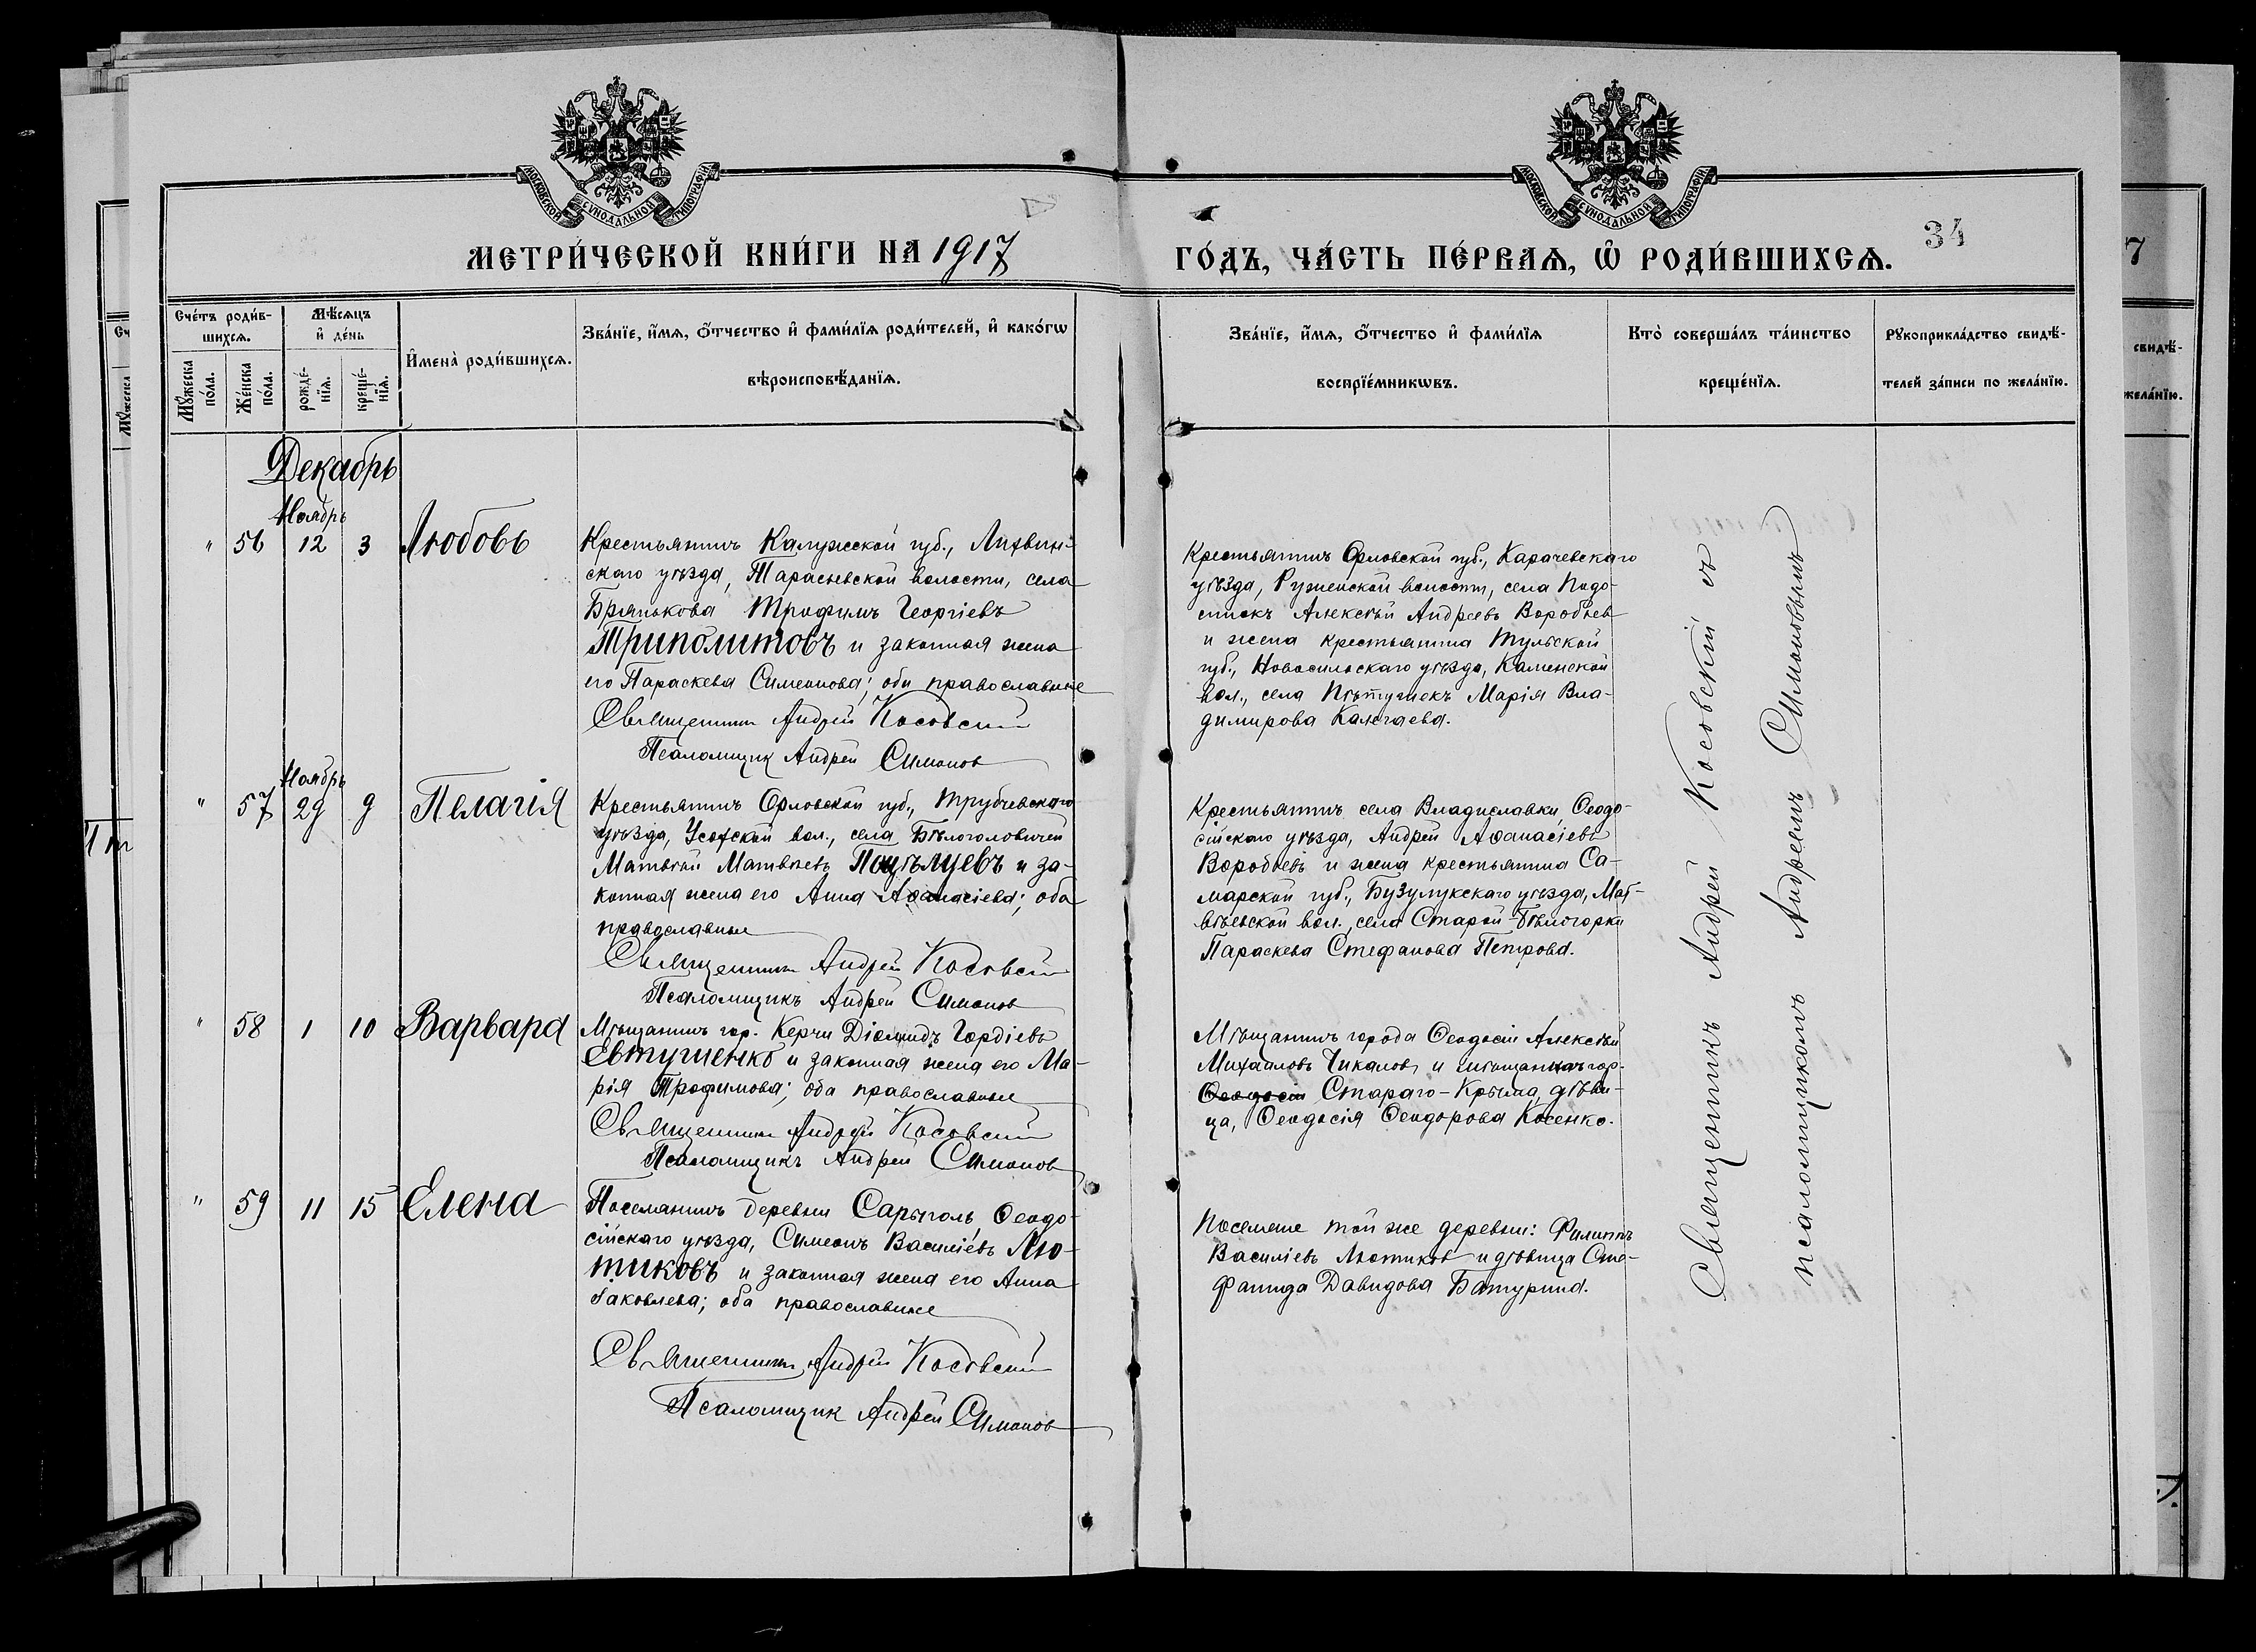 МОСКОВСКОЙ СѴНОДАЛЬНОЙ ТИПОГРАФІИ
МОСКОВСКОЙ СѴНОДАЛЬНОЙ ТИПОГРАФІИ
МЕТРИ́ЧЕСКОЙ КНИ́ГИ НА 1917
ГО́ДЪ, ЧА́СТЬ ПЕ́РВАѦ, Ѽ РОДИ́ВШИХСѦ.
34
Сче́тъ роди́в-
шихсѧ.
Мꙋ́жеска по́ла.
Же́нска по́ла.
Мѣ́сѧцъ
и҆ де́нь
рожде́-
нїѧ.
креще́-
нїѧ.
И҆мена̀ роди́вшихсѧ.
Зва́нїе, и҆́мѧ, ѻ҆́тчество и҆ фами́лїѧ роди́телей, и҆ како́гѡ
вѣроисповѣ́данїѧ.
Зва́нїе, и҆́мѧ, ѻ҆́тчество и҆ фами́лїѧ
воспрїе́мникѡвъ.
Кто̀ соверша́лъ та́инство
креще́нїѧ.
Рꙋкоприкла́дство свидѣ́-
телей за́писи по жела́нїю.
Декабрь
Ноябрь
" 56 12 3 Любовь
Крестьянинъ Калужской губ., Лихвин-
скаго уѣзда, Тарасьевской волости, села
Брянькова Трофимъ Георгіевъ
Триполитовъ и законная жена
его Параскева Симеонова; оба православные
Священникъ Андрей Косовский
Псаломщик Андрей Симонов
Крестьянинъ Орловской губ., Карачевскаго
уѣзда, Руженской волости, села Подо-
синокъ Алексѣй Андреевъ Воробьев
и жена крестьянина Тульской
губ., Новосильскаго уѣзда, Каменской
вол., села Пѣтушекъ Марія Вла-
димирова Калгаева.
Ноябрь
" 57 29 9 Пелагія
Крестьянинъ Орловской губ., Трубчевскаго
уѣзда, Усохской вол., села Бѣлоголовичей
Матвѣй Матвѣевъ Поцѣлуевъ и за-
конная жена его Анна Аѳанасіева; оба
православные
Священникъ Андрей Косовский
Псаломщикъ Андрей Симонов
Крестьянинъ села Владиславки, Ѳеодо-
сійскаго уѣзда, Андрей Аѳанасіевъ
Воробьевъ и жена крестьянина Са-
марской губ., Бузулукскаго уѣзда, Мат-
вѣевской вол., села Старой-Бѣлогорки
Параскева Стефанова Петрова.
" 58 1 10 Варвара
Мѣщанинъ гор. Керчи Діомидъ Гордіевъ
Евтушенко и законная жена его Ма-
рія Трофимова; оба православные
Священникъ Андрей Косовский
Псаломщикъ Андрей Симонов
Мѣщанинъ города Ѳеодосіи Алексѣй
Михаиловъ Чикалов, и мѣщанка гор.
Ѳеодосіи Стараго-Крыма, дѣви-
ца, Ѳеодосія Ѳеодорова Косенко.
" 59 11 15 Елена
Поселянинъ деревни Сарыголь, Ѳеодо-
сійскаго уѣзда, Симеонъ Василіевъ Лю-
тиковъ и законная жена его Анна
Іаковлева; оба православные
Священникъ Андрей Косовский
Псаломщик Андрей Симонов
Поселяне той же деревни: Филиппъ
Василіевъ Лютиков и дѣвица Сте-
фанида Давидова Батурина.
Священникъ Андрей Косовский съ
псаломщикомъ Андреемъ Симоновымъ